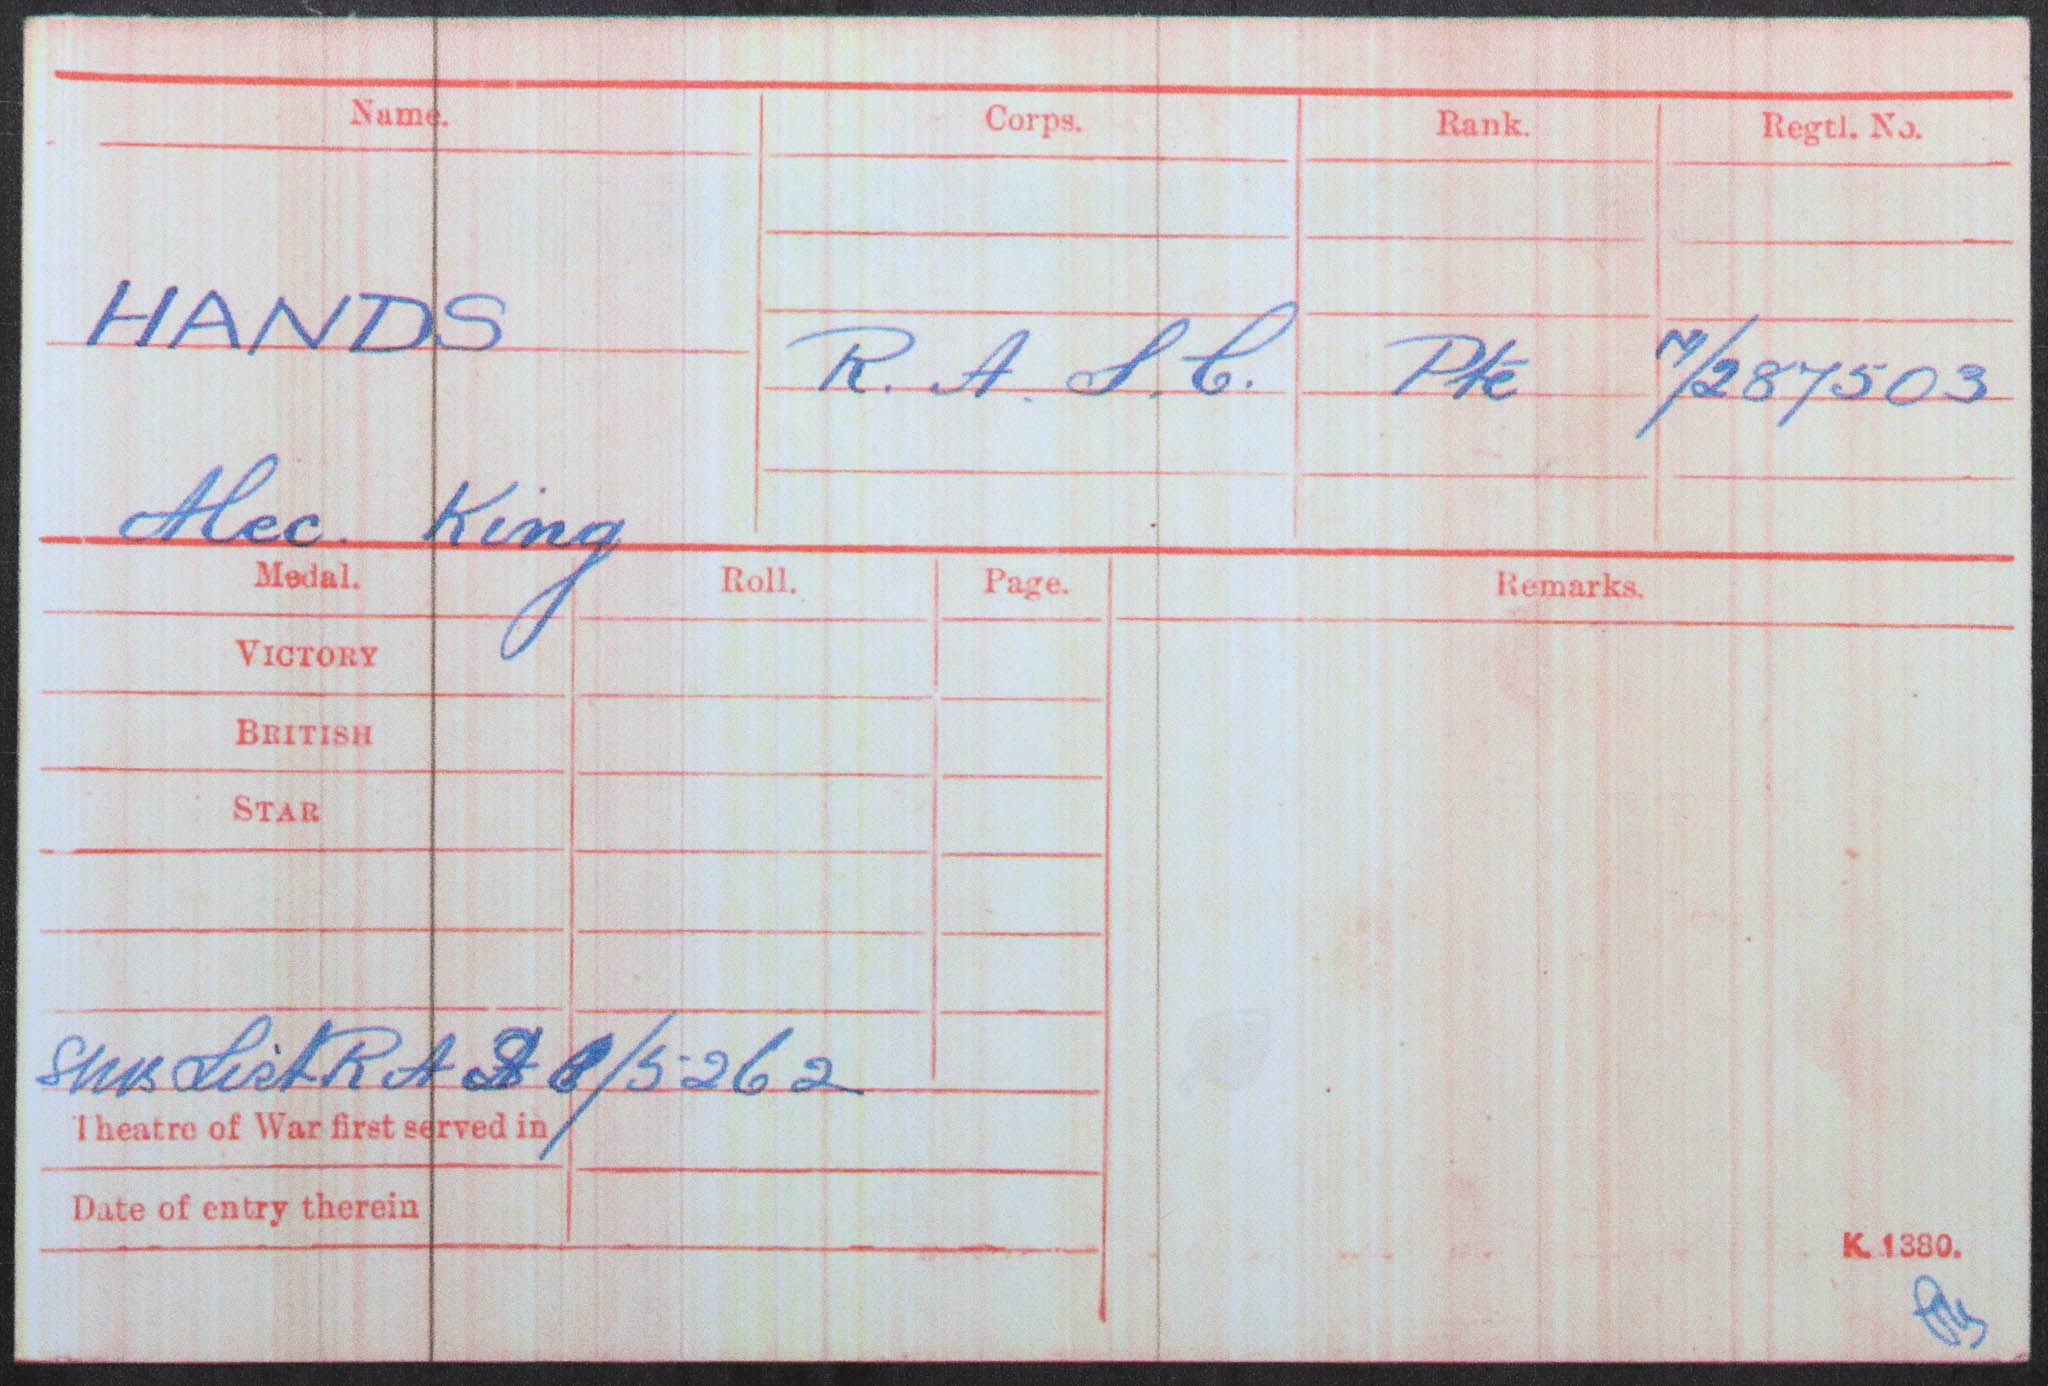 Name. Corps. Rank. Regtl. No.
HANDS
R. A. S. C. Pte M/287503
Alec. King
Medal. Roll. Page. Remarks.
VICTORY
BRITISH
STAR
List R A S C/5262
Theatre of War first served in
Date of entry therein
K. 1380.